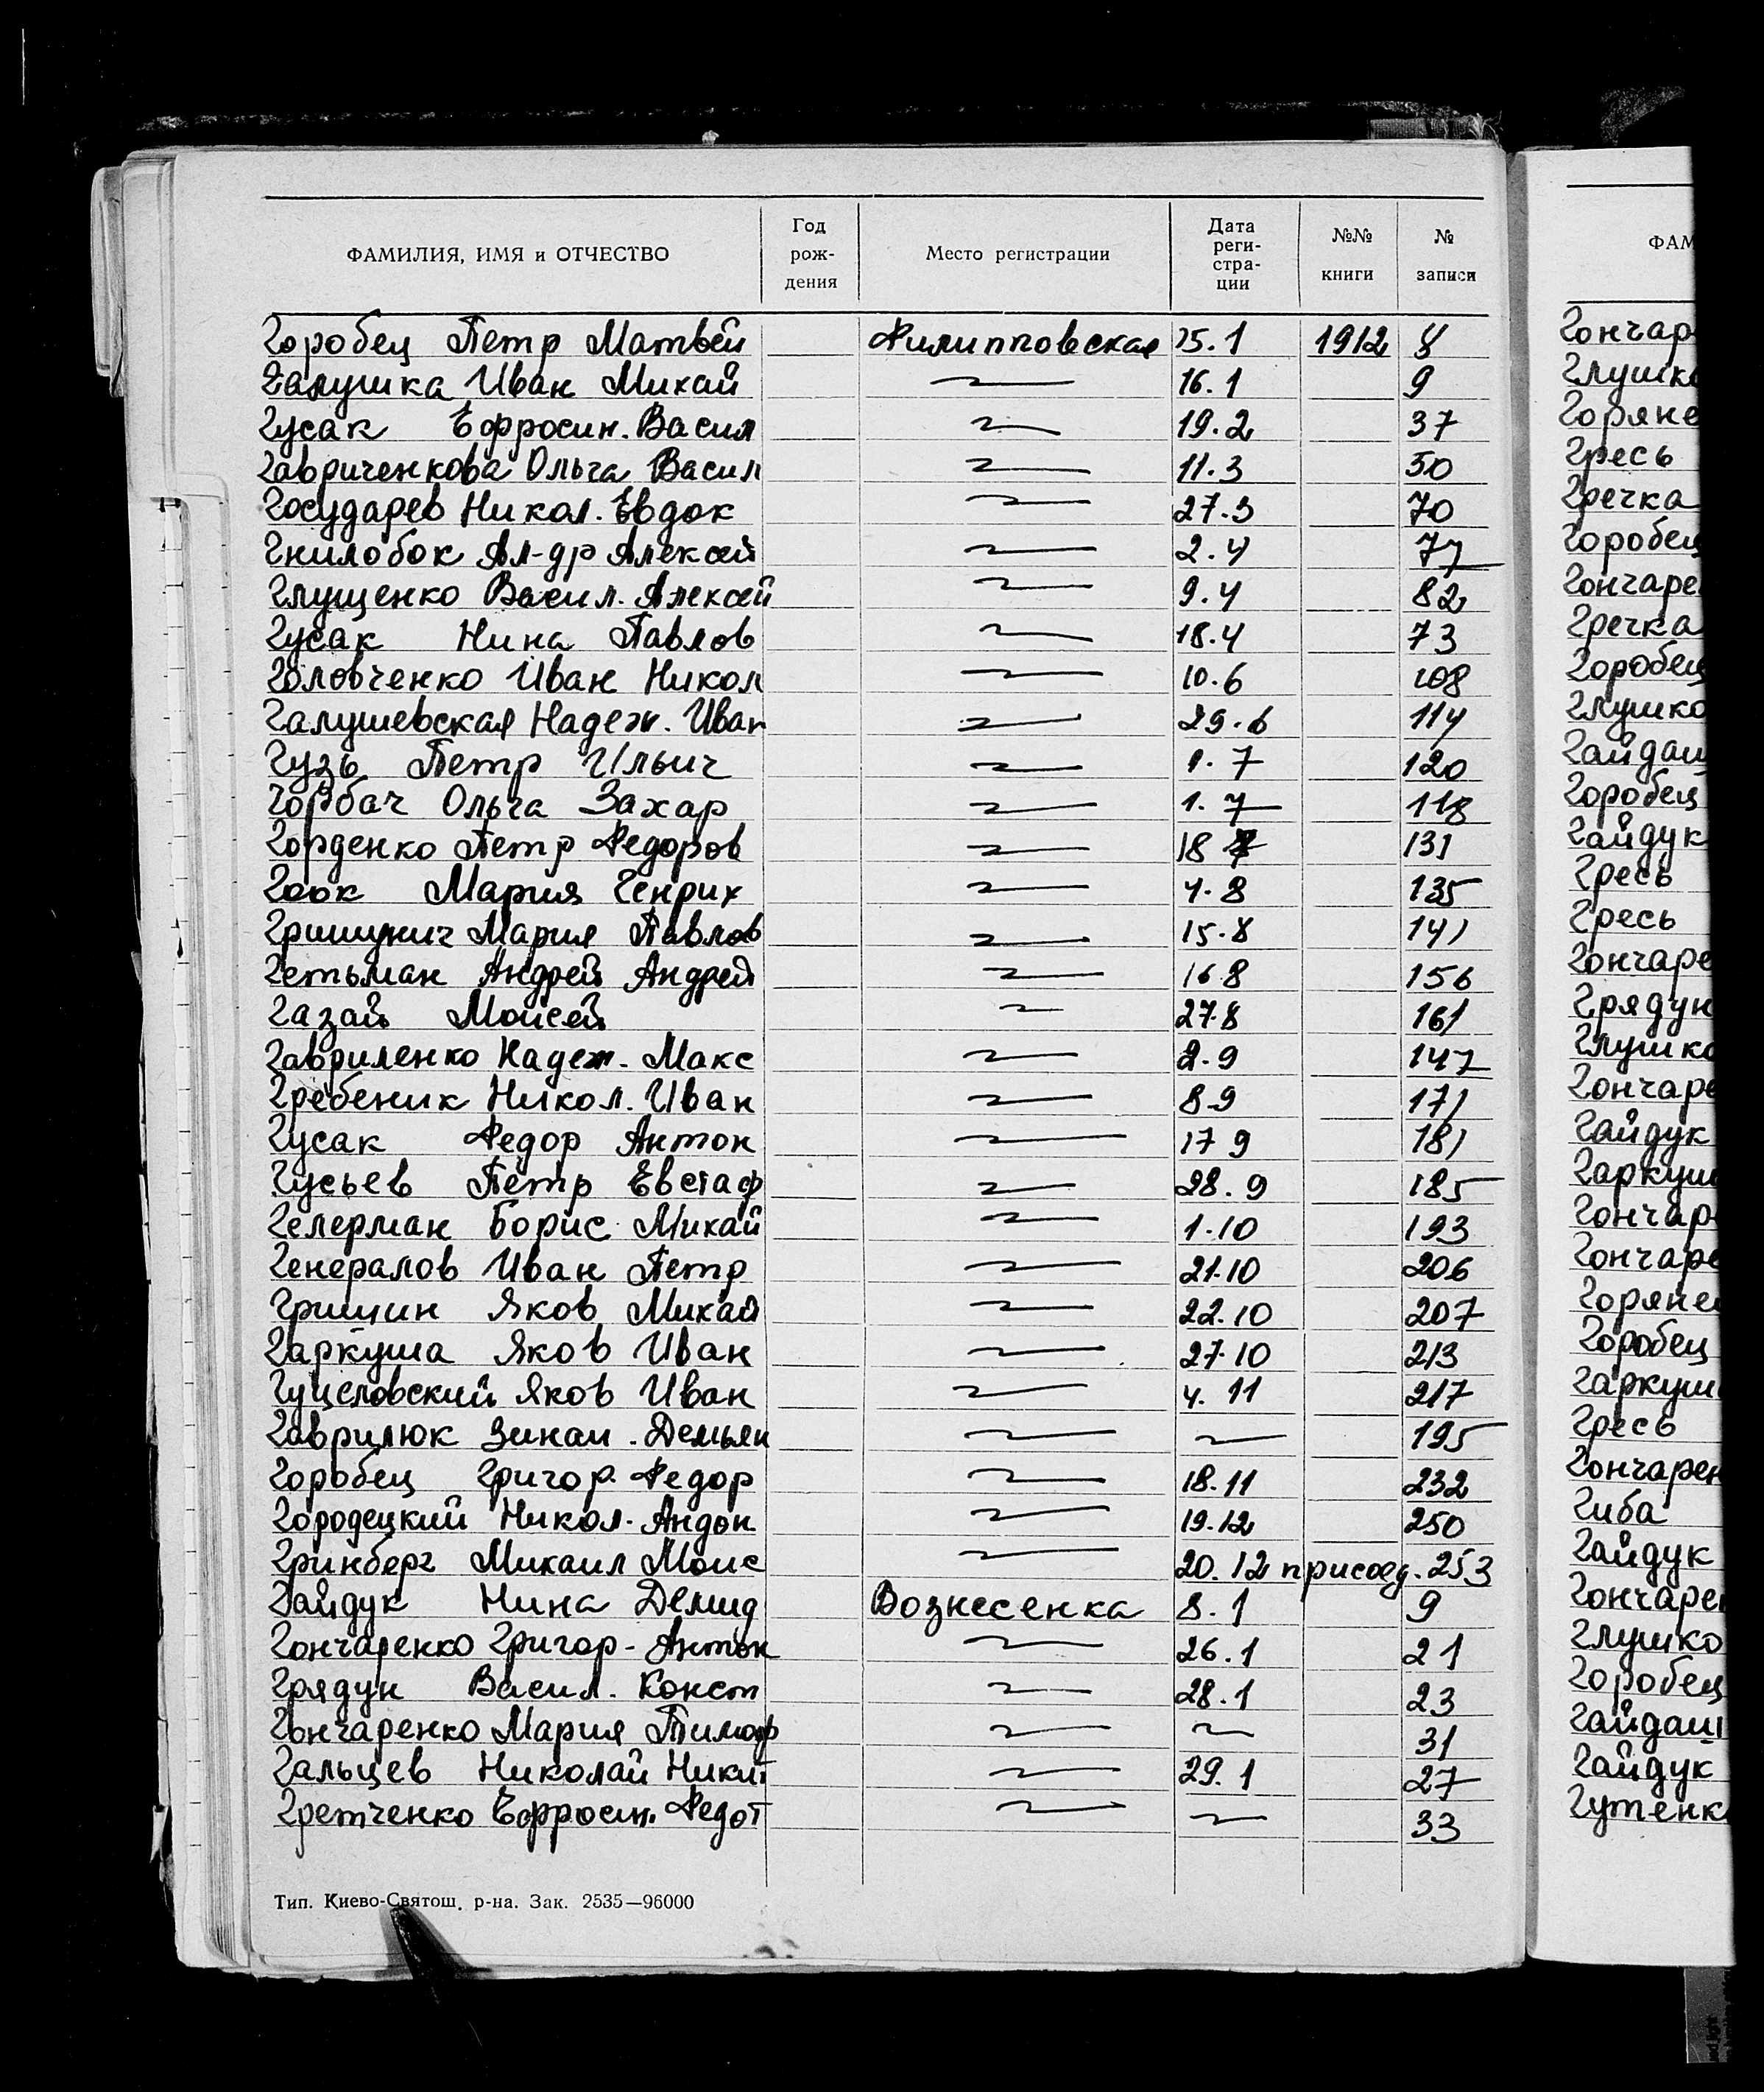 ФАМИЛИЯ, ИМЯ и ОТЧЕСТВО Год рождения Место регистрации Дата реги-стра-ции №№ книги № записи
Горобец Петр Матвей Филипповская 15.1 1912 8
Галушка Иван Михай 16.1 9
Гусак Ефросин. Васил 19.2 37
Гавриченкова Ольга Васил 11.3 50
Государев Никол. Евдок 27.3 70
Гнилобок Ал-др Алексей 2.4 77
Глущенко Васил. Алексей 9.4 82
Гусак Нина Павлов 18.4 73
Головченко Иван Никол 10.6 108
Галушевская Надеж. Иван 29.6 114
Гузь Петр Ильич 1.7 120
Горбач Ольга Захар 1.7 118
Горденко Петр Федоров 18 7 131
Гоок Мария Генрих 1.8 135
Гришунич Мария Павлов 15.8 141
Гетьман Андрей Андрей 16.8 156
Газай Моисей 27.8 161
Гавриленко Надеж. Макс 2.9 147
Гребеник Никол. Иван 8.9 171
Гусак Федор Антон 17 9 181
Гусьев Петр Евстаф 28.9 185
Гелерман Борис Михай 1.10 193
Генералов Иван Петр 21.10 206
Гришин Яков Михай 22.10 207
Гаркуша Яков Иван 27.10 213
Гуцеловский Яков Иван 4.11 217
Гаврилюк Зинаи. Демьян 195
Горобец Григор. Федор 18.11 232
Городецкий Никол. Андон 19.12 250
Гринберг Михаил Моис 20.12 присоед. 253
Гайдук Нина Демид Вознесенка 8.1 9
Гончаренко Григор- Антон 26.1 21
Грядун Васил. Конст 28.1 23
Гончаренко Мария Тимоф 31
Гальцев Николай Никит 29.1 27
Гретченко Ефросин. Федот 33
Тип. Киево-Святош. р-на. Зак. 2535—96000
ФАМ
Гончар
Глушко
Горяне
Гресь
Гречка
Горобец
Гончаре
Гречка
Горобец
Глушко
Гайдаш
Горобец
Гайдук
Гресь
Гресь
Гончаре
Грядун
Глушко
Гончаре
Гайдук
Гаркуш
Гончар
Гончаре
Горяне
Горобец
Гаркуш
Гресь
Гончарен
Гиба
Гайдук
Гончарен
Глушко
Горобец
Гайдаш
Гайдук
Гутенк